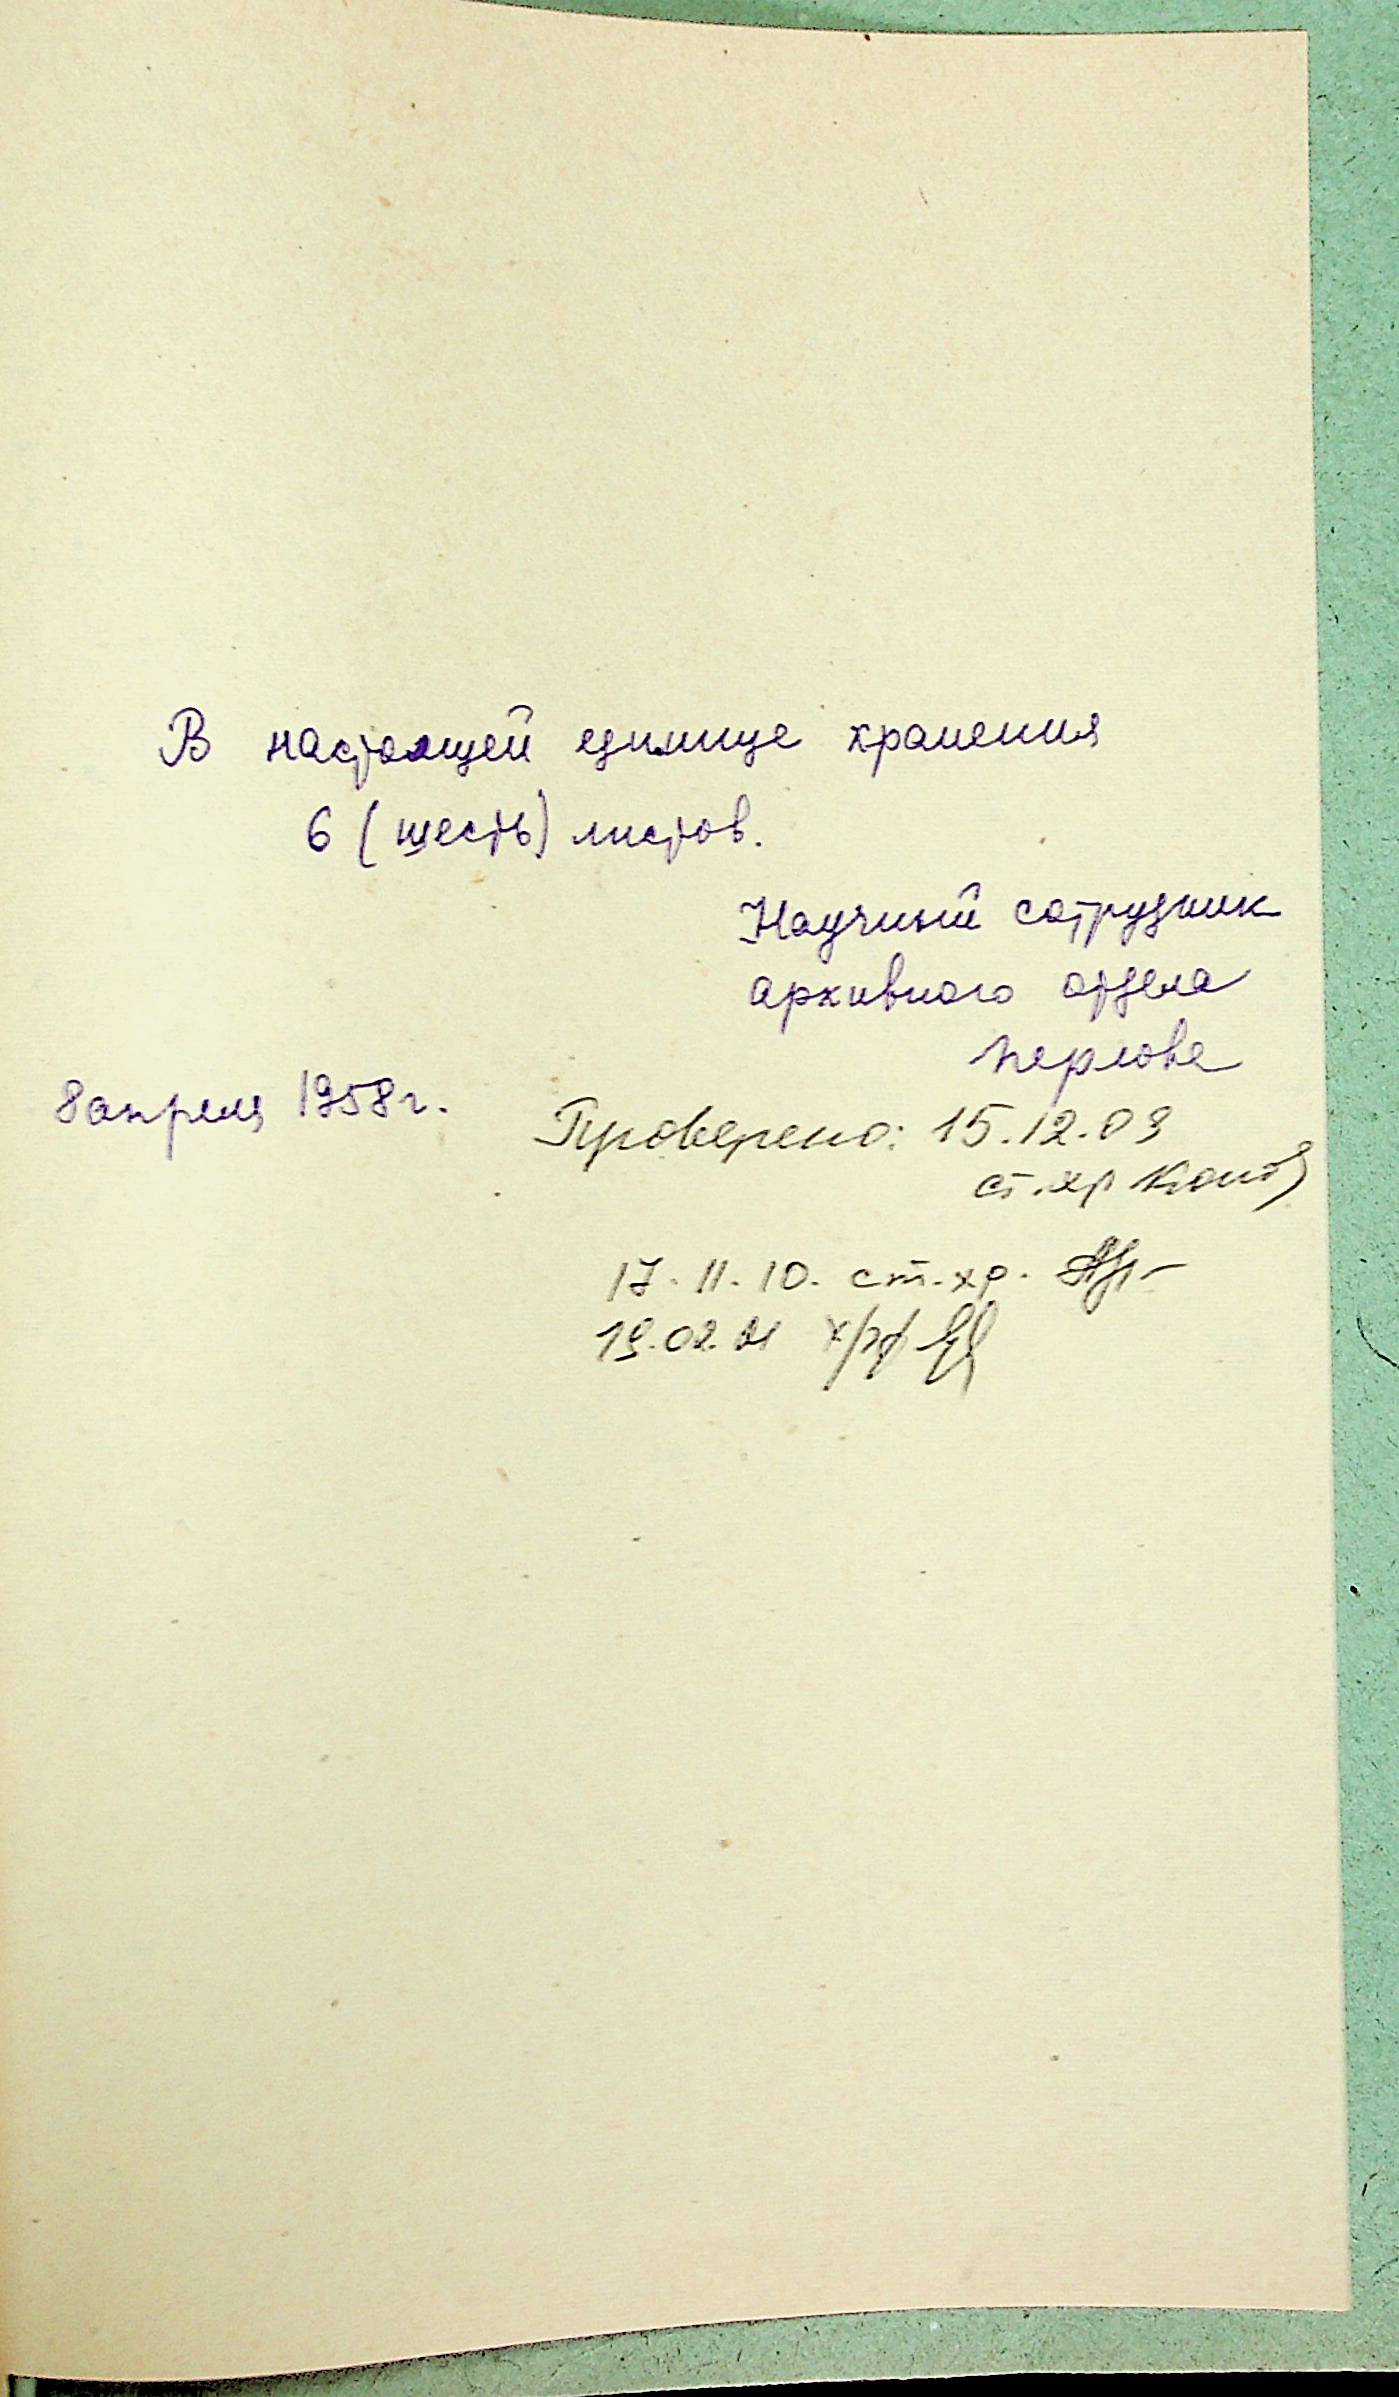 В настоящей единице хранения
6 (шесть) листов.
Научный сотрудник
архивного отдела
Перлова
8 апреля 1958 г.
Проверено: 15.12.09
ст. хр
17.11.10. ст. хр.
19.02.21 хрф